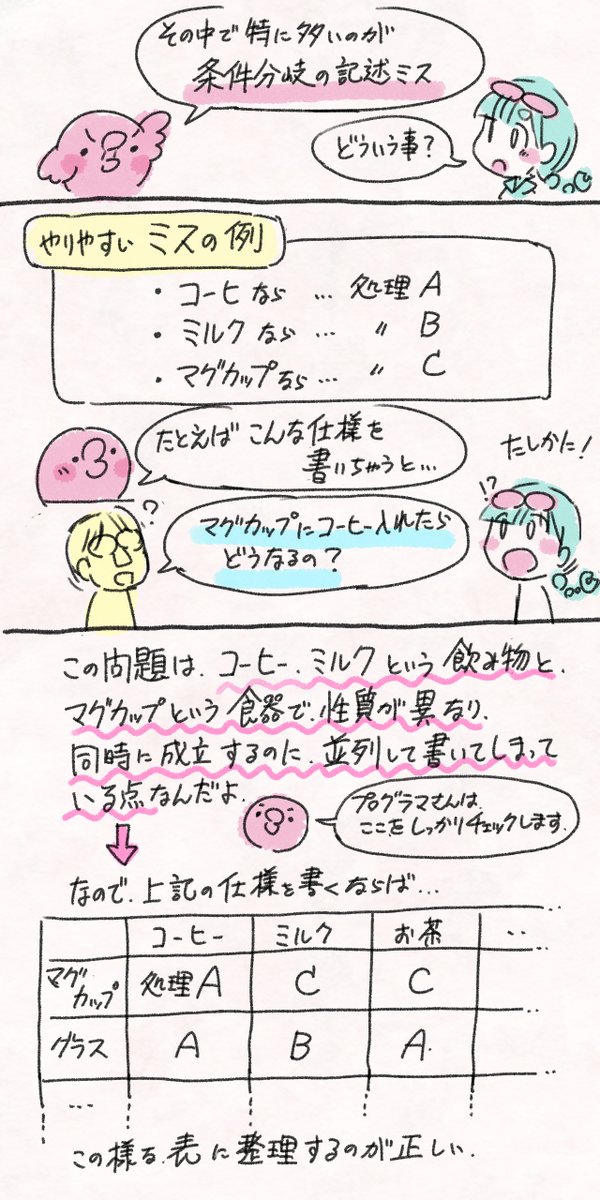 その中で特に多いのが
条件分岐の記述ミス
どういう事?
やりやすい ミスの例
・コーヒなら … 処理A
・ミルクなら … 〃 B
・マグカップなら… 〃 C
たとえばこんな仕様を
書いちゃうと…
たしかに!
!?
?
マグカップにコーヒー入れたら
どうなるの?
この問題は、コーヒー、ミルクという飲み物と、
マグカップという食器で、性質が異なり、
同時に成立するのに、並列して書いてしまって
いる点なんだよ。
プログラマさんは、
ここをしっかりチェックします。
なので、上記の仕様を書くならば…
コーヒー ミルク お茶 ‥
マグカップ 処理A C C
グラス A B A.
…
この様な表に整理するのが正しい。